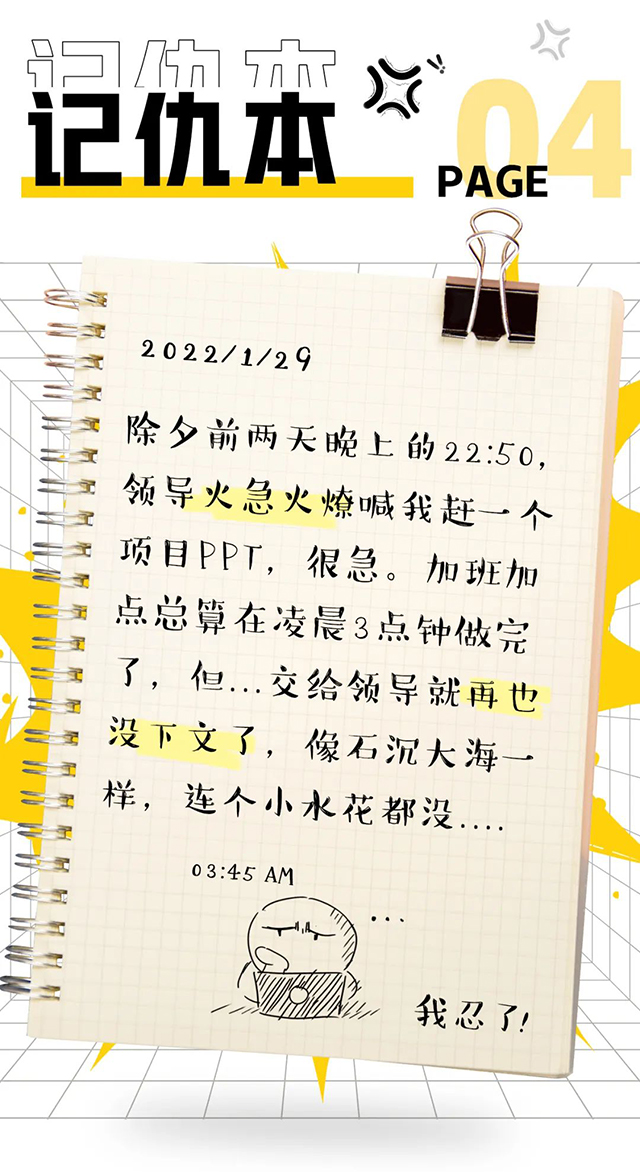 记仇本
记仇本
PAGE
04
2022/1/29
除夕前两天晚上的22:50,
领导火急火燎喊我赶一个
项目PPT，很急。加班加
点总算在凌晨3点钟做完
了，但...交给领导就再也
没下文了，像石沉大海一
样，连个小水花都没....
03:45 AM
...
我忍了!